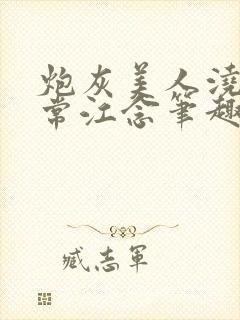 炮灰美人浇
常江念笔趣
臧志军